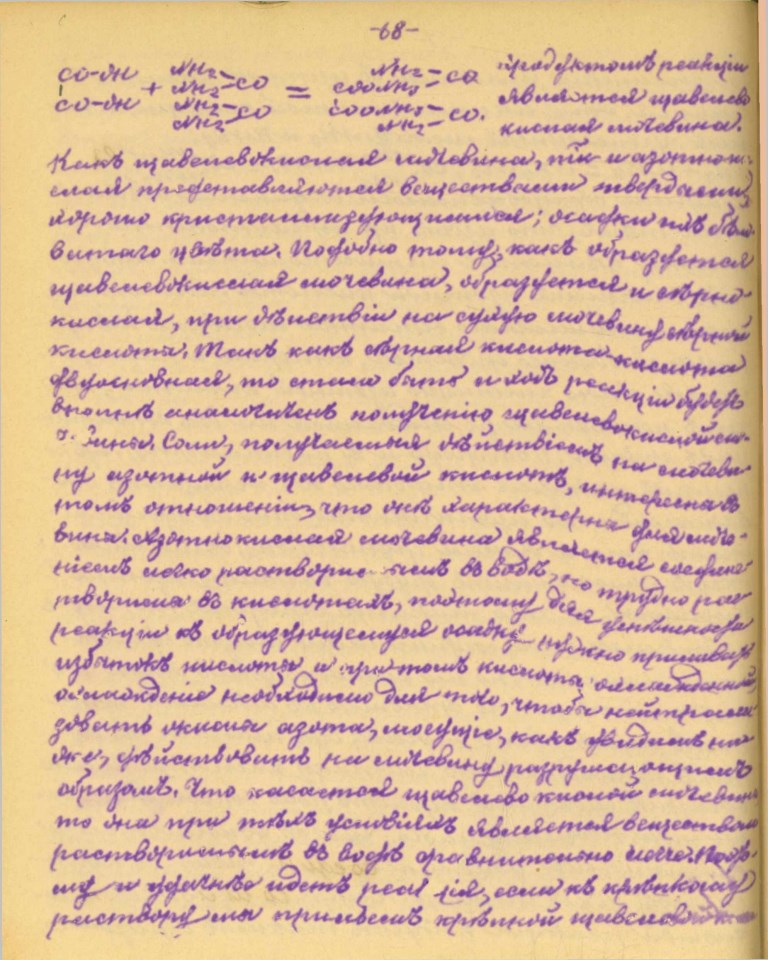 -68-
CO-OH + NH2 NH2 CO = NH2 COONH3 CO продуктомъ реакціи
CO-OH NH2 NH2 CO COONH3 NH2 CO. является щавелево
кислая мочевина.
Какъ щавелевокислая мочевина, такъ и азотноки-
слая представляются веществами твердыми,
хорошо кристаллизующимися; осадки ихъ бѣло-
ватаго цвѣта. Подобно тому, какъ образуется
щавелевокислая мочевина, образуется и сѣрно-
кислая, при дѣйствіи на сухую мочевину сѣрной
кислоты. Такъ какъ сѣрная кислота кислота
двуосновная, то стало быть и ходъ реакціи будетъ
вполнѣ аналогиченъ полученію щавелевокислой
Соли, получаемыя дѣйствіемъ на мочеви-
ну азотной и щавелевой кислотъ, интересны въ
томъ отношеніи, что онѣ характерны для моче-
вины. Азотнокислая мочевина является соедине-
ніемъ легко растворимымъ въ водѣ, но трудно рас
творима въ кислотахъ, поэтому для успѣшности
реакціи къ образующемуся осадку нужно прибавить
избытокъ кислоты и притомъ кислоты охлажденной,
охлажденіе необходимо для того, чтобы нейтрали
зовать окислы азота, могущіе, какъ увидимъ ни-
же, дѣйствовать на мочевину разрушающимъ
образомъ. Что касается щавелево кислой мочевины
то она при тѣхъ условіяхъ является веществомъ
растворимымъ въ водѣ сравнительно легче. Поэто-
му и удачнѣе идетъ реакція, если къ крѣпкому
раствору мы прильемъ крѣпкой щавелевой